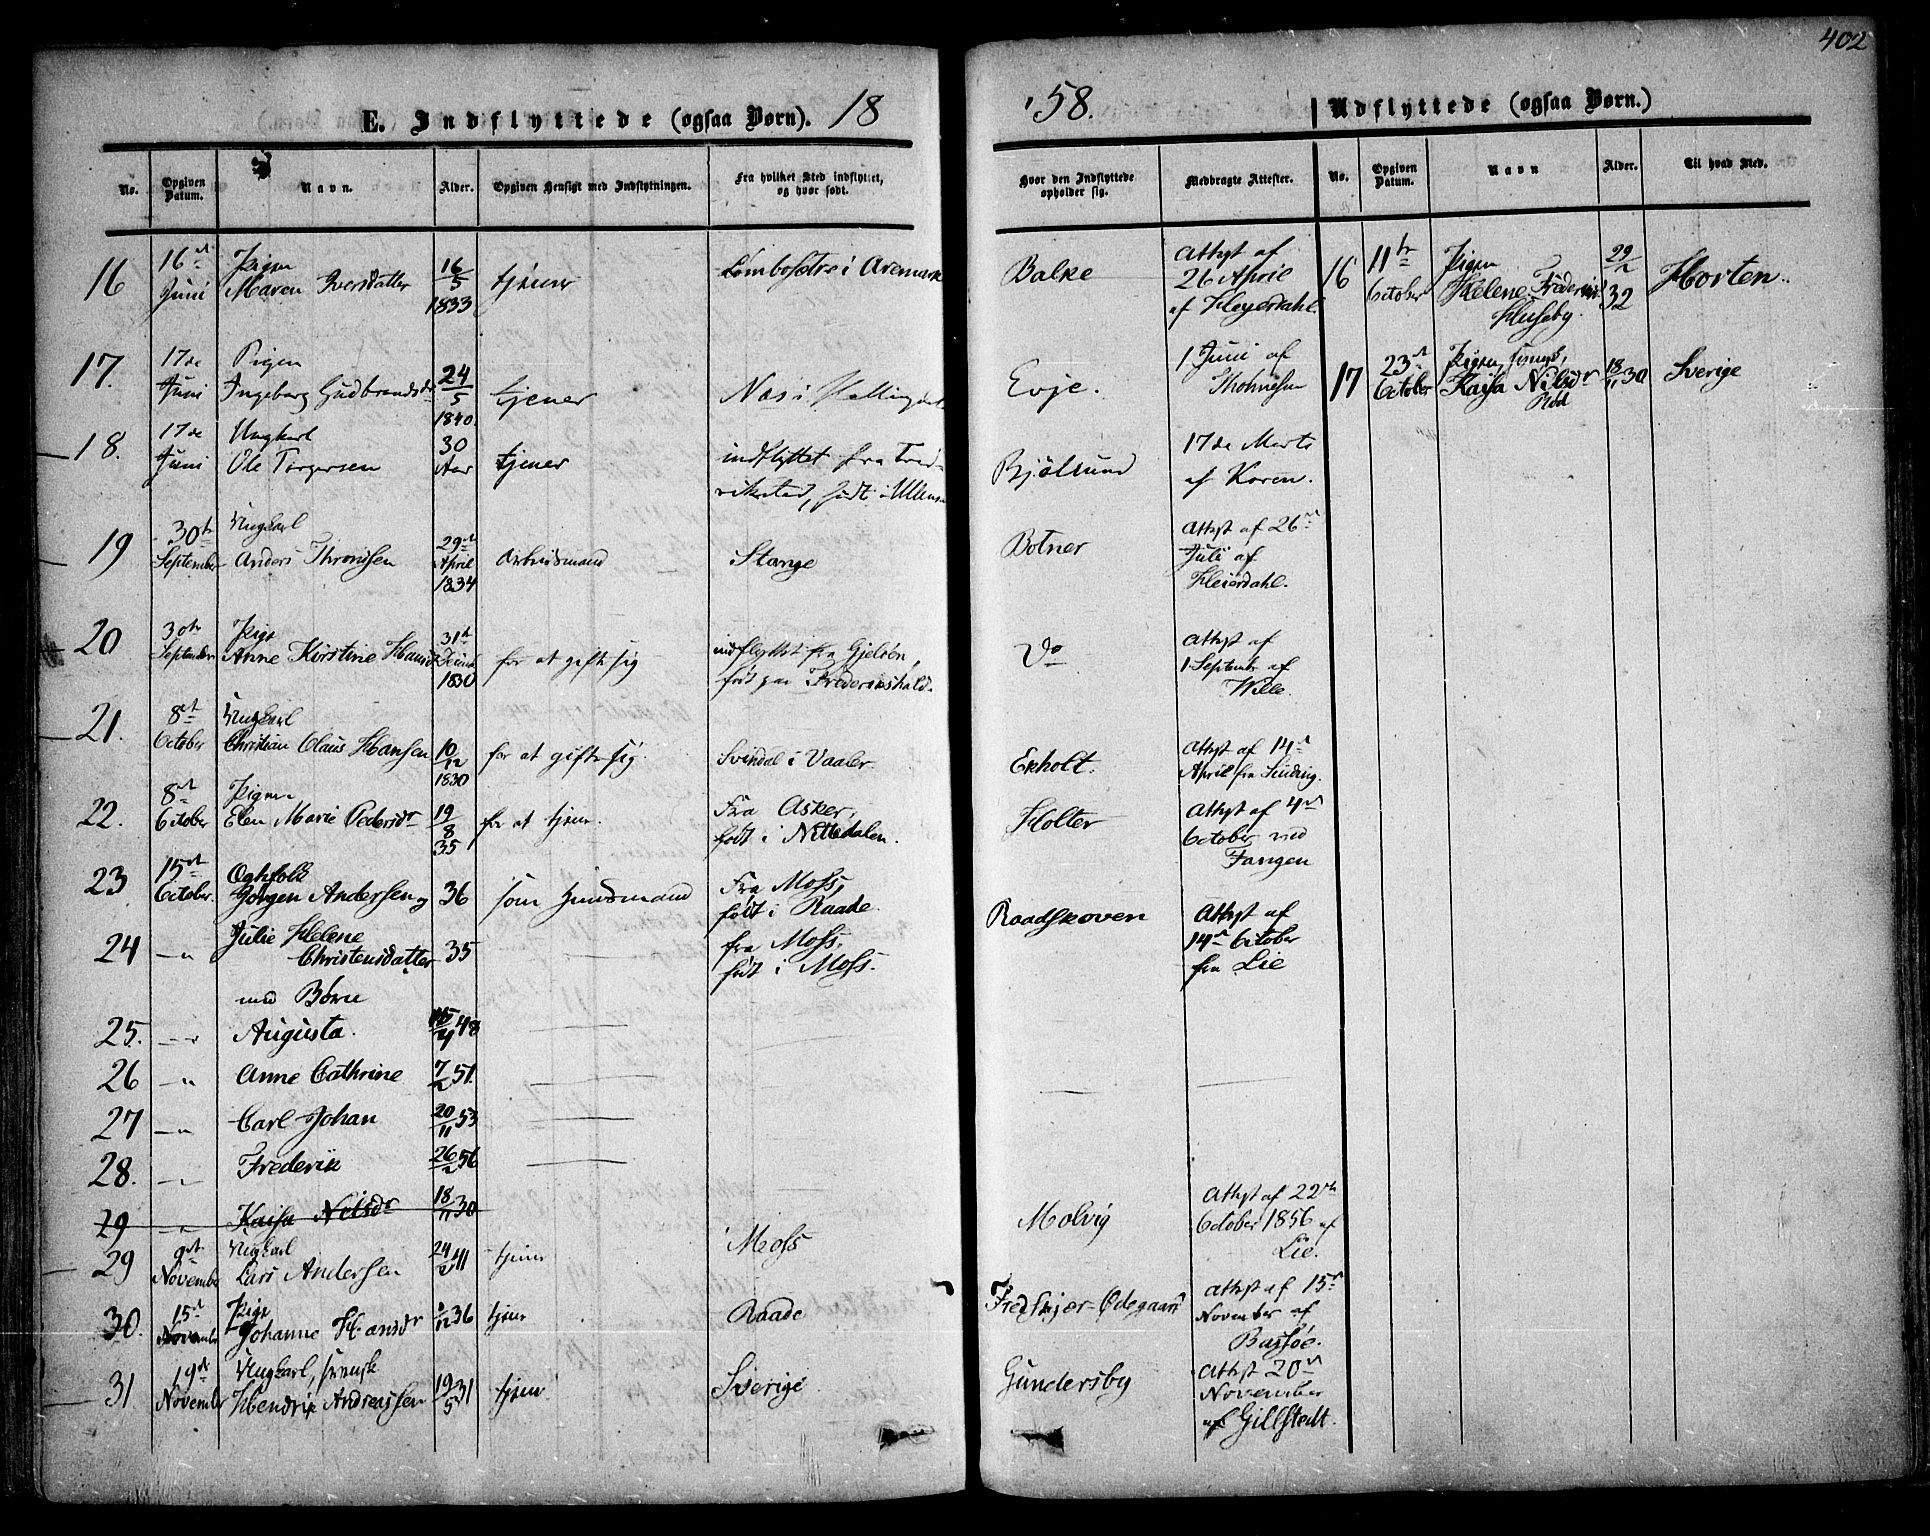 402
E. Indflyttede (ogsaa Børn). 18
No. Opgiven Datum. Navn. Alder. Opgiven Hensigt med Indflytningen. Fra hvilket Sted indflyttet, og hvor født.
16 16de Juni Pigen Maren Iversdatter 16/5 1833 tjener i Aremark
17. 17de Juni Pigen Ingeborg Gudbrandsdr 24/5 1840. tjener Næs i
18. 17de Juni Ungkarl Ole Torgersen 30 Aar tjener indflyttet fra Fredrikstad, født i
19 30te September Ungkarl Anders Thronsen 29de April 1834 Arbeidsmand Stange
20 30te September Pige Anne Kirstine 31te 1830 for at gifte sig indflyttet fra født paa Frederikshald.
21. 8de October Ungkarl Christian Claus Hansen 10/12 1830 for at gifte sig. Svindal i Vaaler.
22. 8de October Pigen Elen Marie Pedersdr 19/8 35 for at tjene. Fra Asker, født i Nittedalen.
23 15de October. Ægtfolk Jørgen Andersen og 36 som Huusmand Fra Moss, født i Raade.
24 — " Julie Helene Christensdatter 35 — fra Moss. født i Moss.
med Børn
25. — " Augusta. 48 —
26 — " Anne Cathrine 7/2 51. —
27 — " Carl Johan 20/11 53 —
28. — " Frederik 26/2 56 —
29 — " Kaisa Nilsdr 18/11 30
29 9de November Ungkarl Lars Andersen 24/2 41 tjener Moss
30. 15de November Pige Johanne Hansdr 36 tjener Raade
31 19de November Ungkarl, svensk Hendrik Andreassen 19/5 31 tjener Sverige
'58. Udflyttede (ogsaa Børn.)
Hvor den Indflyttede opholder sig. Medbragte Attester. No. Opgiven Datum. Navn Alder. Til hvad Sted.
Balke Attest af 26 April af Heyerdahl. 16 11te October Pigen Helene Huseby. 29/2 32 Horten.
Evje. 1 Juni af 17 23de October Pigen, svensk, Kaisa Nilsdr 18/11 30 Sverige
Bjølsund 17de Marts af Koren.
Botner Attest af 26de Juli af Heierdahl.
Do Attest af 1 September af Wille.
Ekholt. Attest af 14de April fra Sinding.
Holter Attest af 4de October ved Fangen
Raadskoven Attest af 14de October fra Lie
Molvig Attest af 22de October 1856 af Lie.
Fredskjær-Ødegaard Attest af 15de November af Bassøe.
Gundersby Attest 20de November af Gillstedt.